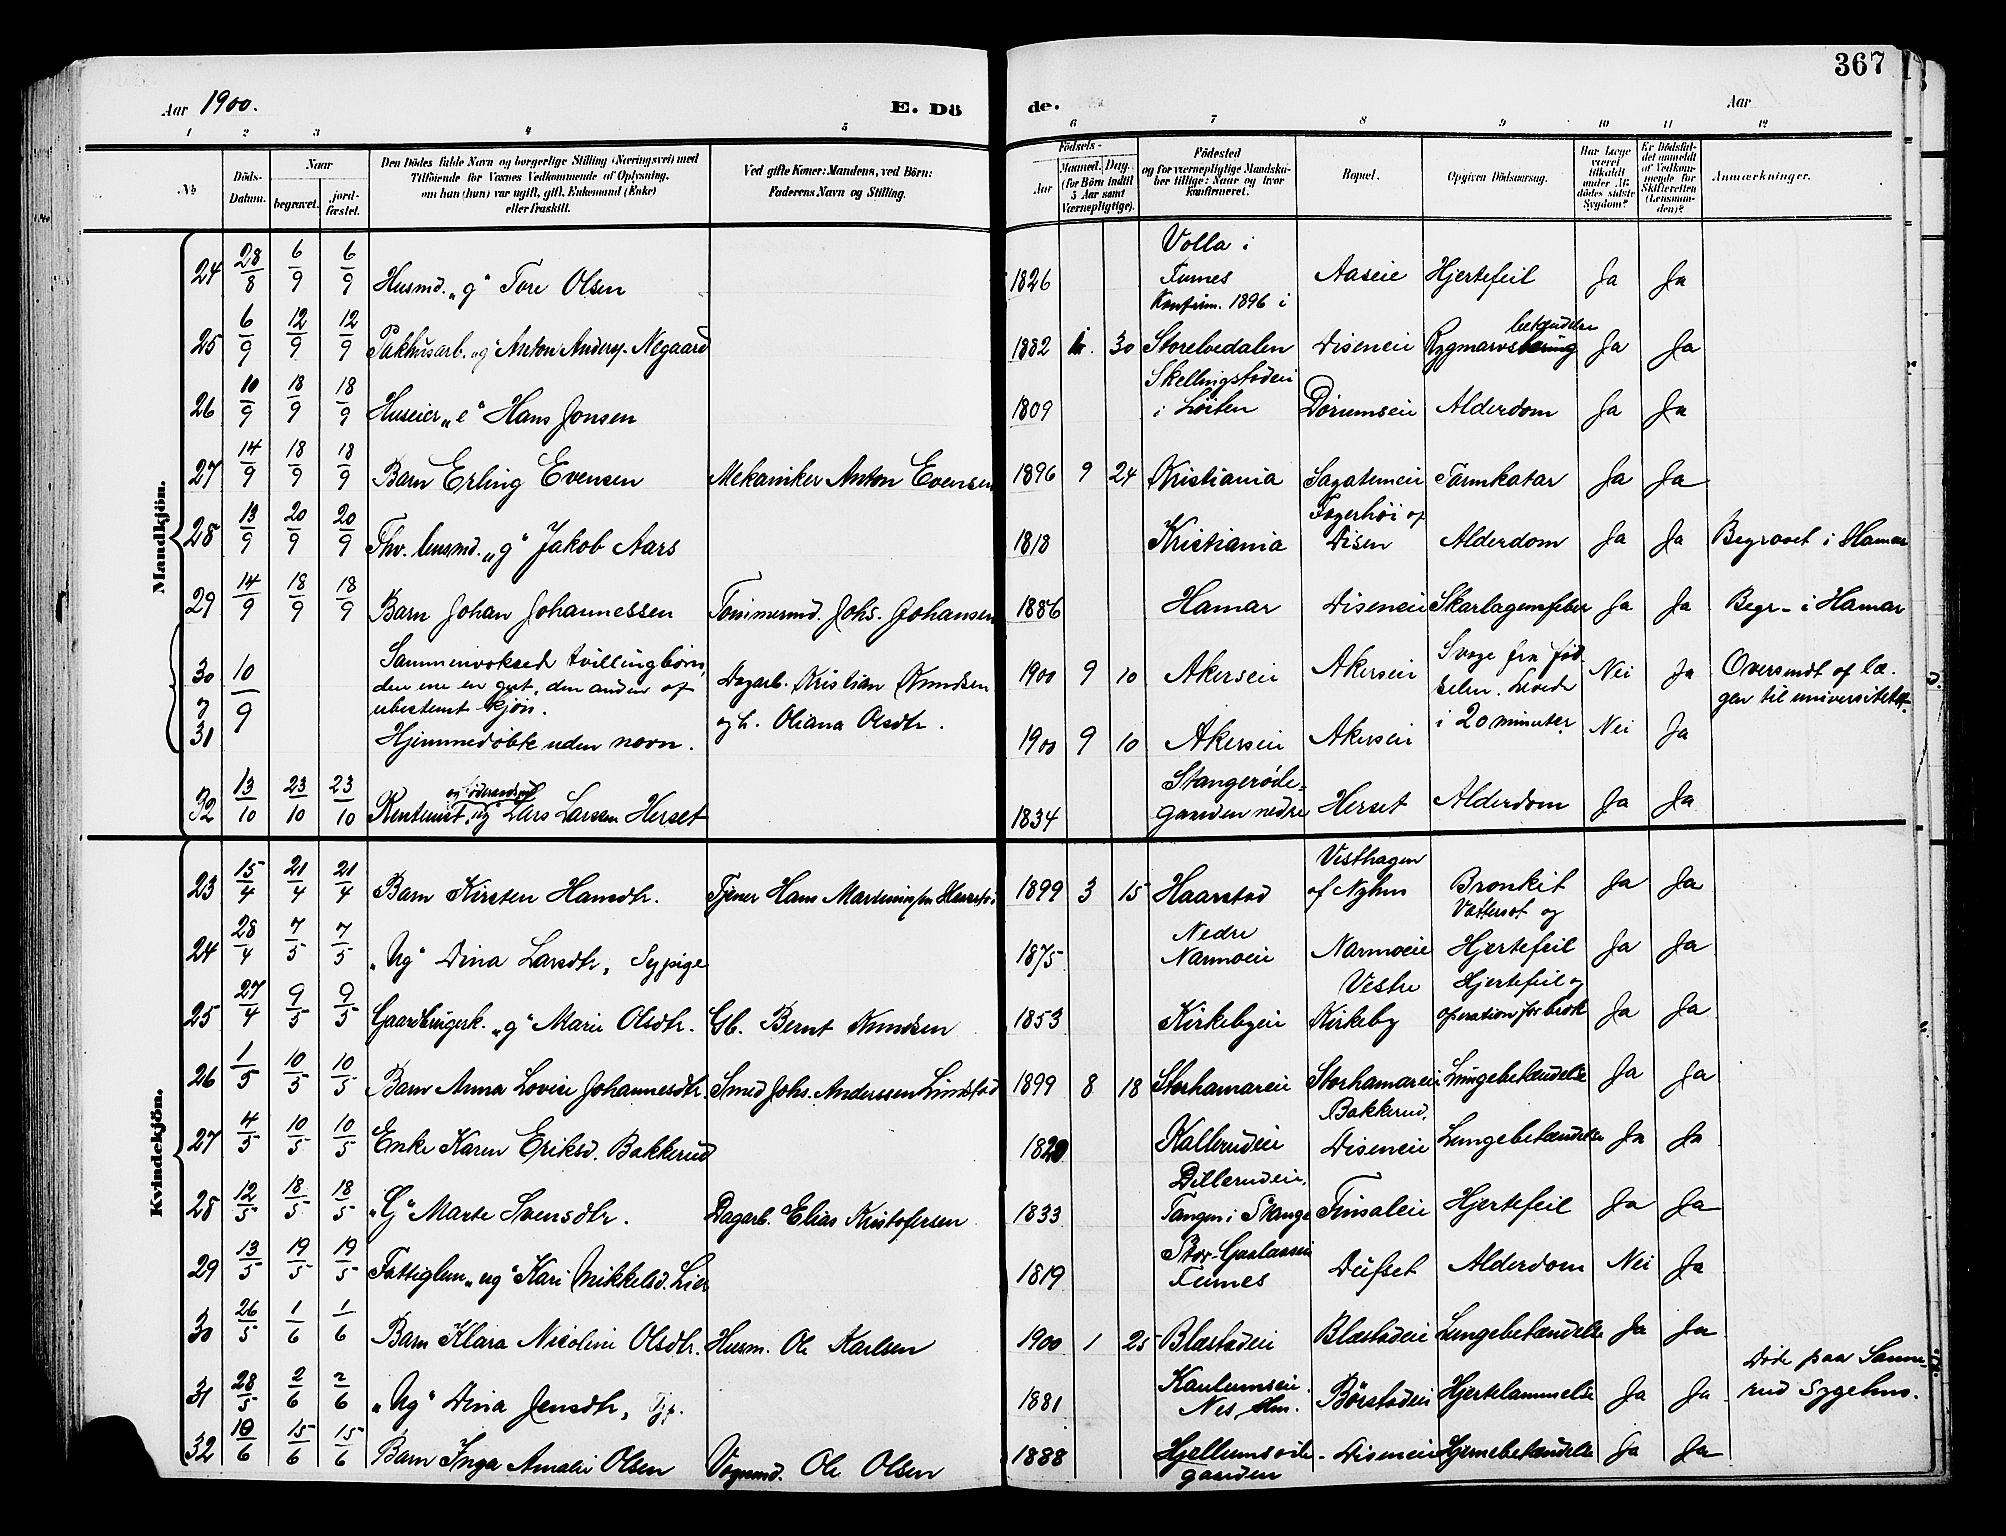 367
Aar 1900. E. Dö de. Aar
1 2 3 4 5 6 7 8 9 10 11 12
No Döds-Datum. Naar begravet. jord-fæstet. Den Dödes fulde Navn og borgerlige Stilling (Næringsvei) med Tilföiende for Voxnes Vedkommende af Oplysning, om han (hun) var ugift, gift, Enkemand (Enke) eller fraskilt. Ved gifte Koner: Mandens, ved Börn: Faderens Navn og Stilling. Födsels- Aar Maaned. Dag. (for Börn indtil 5 Aar samt Værnepligtige). Födested og for værnepligtige Mandskaber tillige: Naar og hvor konfirmeret. Bopæl. Opgiven Dödsaarsag. Har Læge været tilkaldt under Afdödes sidste Sygdom? Er Dödsfaldet anmeldt af Vedkommende for Skifteretten (Lensmanden)? Anmærkninger.
Mandkjön.
24 28/8 6/9 6/9 Husmd. „g“ Tore Olsen 1826 Volla i Furnes Aaseie Hjertefeil Ja Ja
25 6/9 12/9 12/9 Pakhusarb. „ug“ Anton Anders. Negaard 1882 30 Konfirm. 1896 i Storelvedalen Diseneie Rygmarvsbetændelse Ja Ja
26 10/9 18/9 18/9 Huseier „e“ Hans Jonsen 1809 Skellingstadeie i Löiten Dørumseie Alderdom Ja Ja
27 14/9 18/9 18/9 Barn Erling Evensen Mekaniker Anton Evensen 1896 9 24 Kristiania Sagatuneie Tarmkatar Ja Ja
28 13/9 20/9 20/9 Fhv. lensmd. „g“ Jakob Aars 1818 Kristiania Fagerhøi af Disen Alderdom Ja Ja Begravet i Hamar
29 14/9 18/9 18/9 Barn Johan Johannessen Tømmermd. Johs. Johansen 1886 Hamar Diseneie Skarlagensfeber Ja Ja Begr. i Hamar
30 10/9 Sammenvoksed tvillingbørn, Dagarb. Kristian Knudsen 1900 9 10 Akerseie Akerseie Svage fra fødselen. Levede Nei Ja Oversendt af lægen til universitetet.
den ene en gut, den anden af
ubestemt kjøn. og h. Oliana Olsdtr. i 20 minuter
31 Hjemmedøbte uden navn. 1900 9 10 Akerseie Akerseie Nei Ja
32 13/10 23/10 23/10 Rentenist „ug“ Lars Larsen Herset 1834 Stangerøde-gaarden nedre Herset Alderdom Ja Ja
Kvindekjön.
23 15/4 21/4 21/4 Barn Kirsten Hansdtr. Tjener Hans Martinius 1899 3 15 Haarstad Vesthagen af Nyhus Bronkit Ja Ja
24 28/4 7/5 7/5 „Ug“ Dina Larsdtr, Sypige 1875 Nedre Narmoeie Narmoeie Vattersot og Hjertefeil Ja Ja
25 27/4 9/5 9/5 Gaardbrugerk. „g“ Marie Olsdtr. Gb. Bernt Knudsen 1853 Kirkebyeie Vestre Kirkeby Hjertefeil og operation for brok Ja Ja
26 1/5 10/5 10/5 Barn Anna Lovise Johannesdtr. Smed Johs. Anderssen Lundstad 1899 8 18 Storhamareie Storhamareie Lungebetændelse Ja Ja
27 4/5 10/5 10/5 Enke Karen Eriksd. Bakkerud 1820 Kallerudeie Bakkerud, Diseneie Lungebetændelse Ja Ja
28 12/5 18/5 18/5 „G“ Marte Svensdtr. Dagarb. Elias Kristofersen 1833 Dillerudeie, Tangen i Stange Finsaleie Hjertefeil Ja Ja
29 13/5 19/5 19/5 Fattiglem „ug“ Kari Mikkelsd. Lier 1819 Stor-Gaalaaseie Furnes Dufset Alderdom Nei Ja
30 26/5 1/6 1/6 Barn Klara Nicoline Olsdtr. Husm. Ole Karlsen 1900 1 25 Blæstadeie Blæstadeie Lungebetændelse Ja Ja
31 28/5 2/6 2/6 „Ug“ Dina Jensdtr, Tjp. 1881 Kaulumseie, Nes, Hm. Børstadeie Hjertelammelse Ja Ja Døde paa Sannerud Sygehus.
32 10/6 15/6 15/6 Barn Inga Amalie Olsen Vognmd. Ole Olsen 1888 Hjellumsøde-gaarden Diseneie Hjernebetændelse Ja Ja